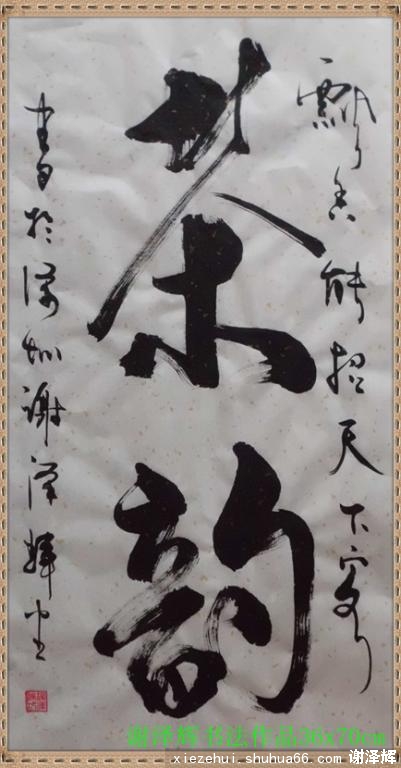 飘香能招天下客
茶韵
書於深圳谢泽辉書
谢泽辉书法作品36x70cm
xiezehui.shuhua66.com 谢泽辉